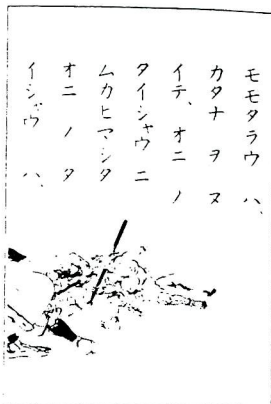 モモタラウ ハ、
カタナ ヲ ヌ
イテ、オニ ノ
タイシャウ ニ
ムカヒマシタ
オニ ノ タ
イシャウ ハ、